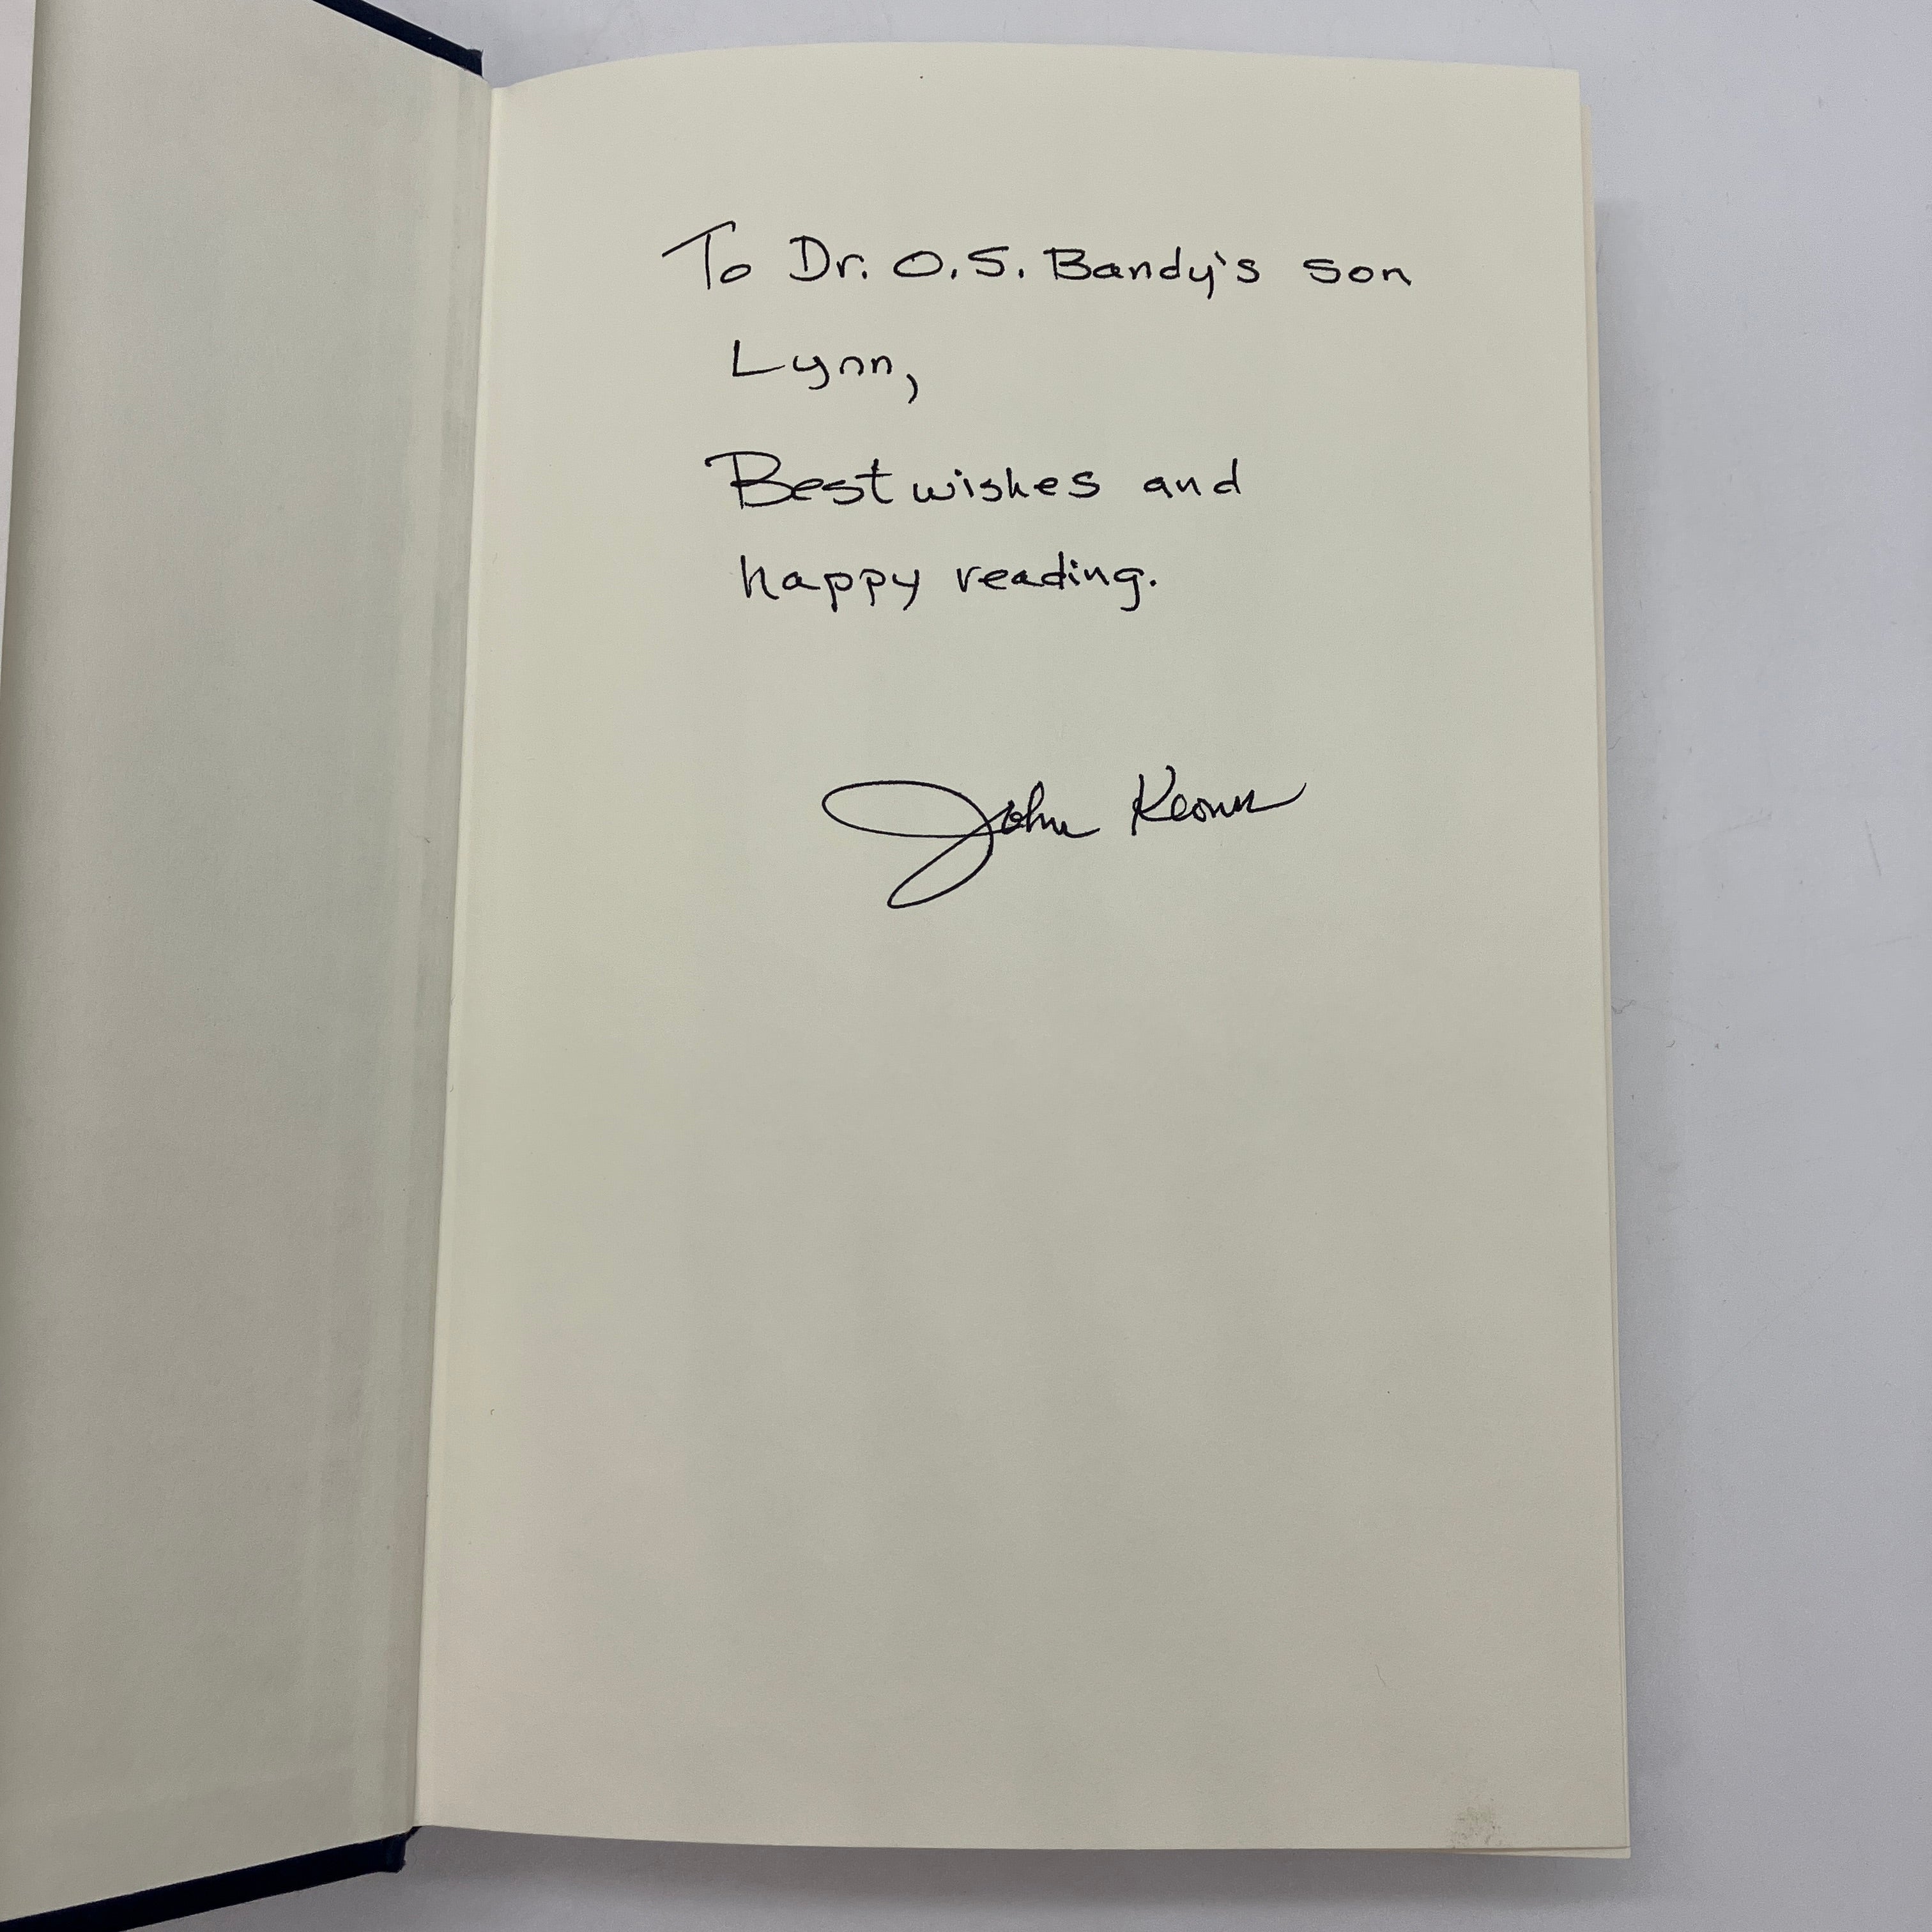 To Dr. O.S. Bandy's son
Lynn,
Best wishes and
happy reading.
John